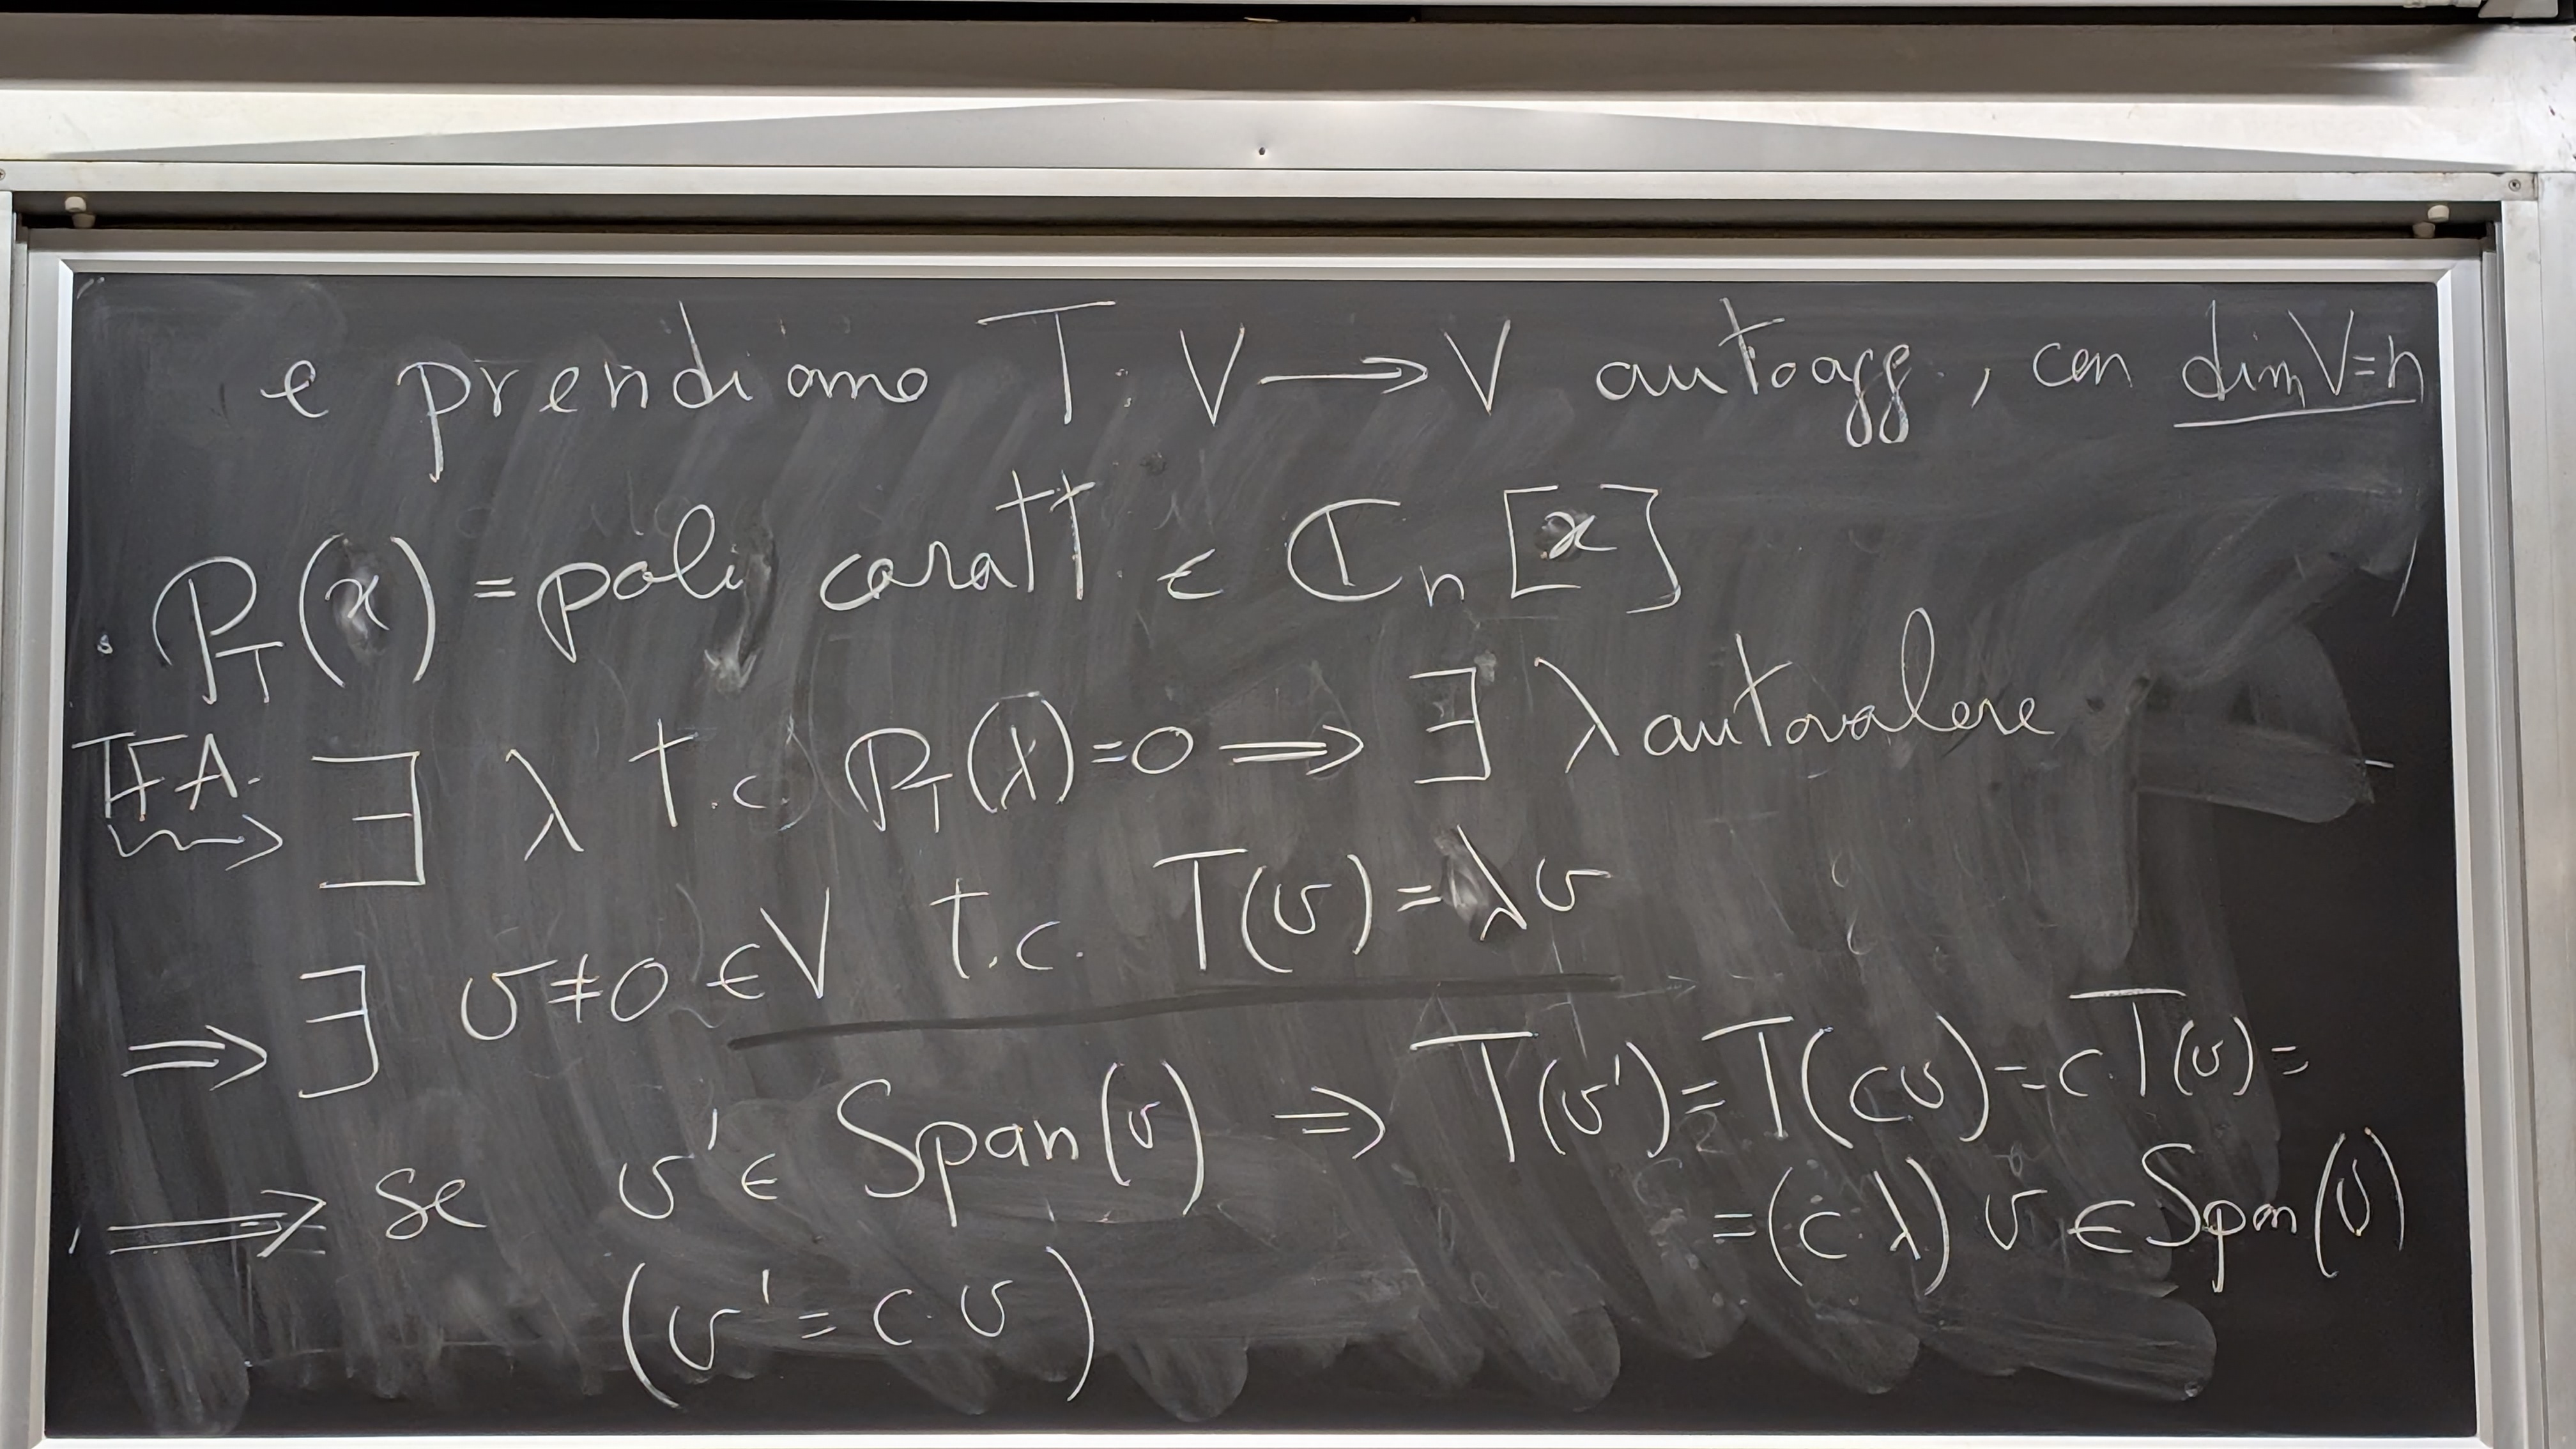 e prendiamo T: V ⟶ V autoagg., con dim V=n
P_T(x) = poli caratt. ∈ ℂ_n[x]
T.F.A. ⇝ ∃ λ t.c. P_T(λ)=0 ⟹ ∃ λ autovalore
⟹ ∃ v≠0 ∈ V t.c. T(v) = λv
⟹ se v' ∈ Span(v) ⟹ T(v') = T(cv) = c·T(v) =
(v' = c·v)
= (c·λ) v ∈ Span(v)